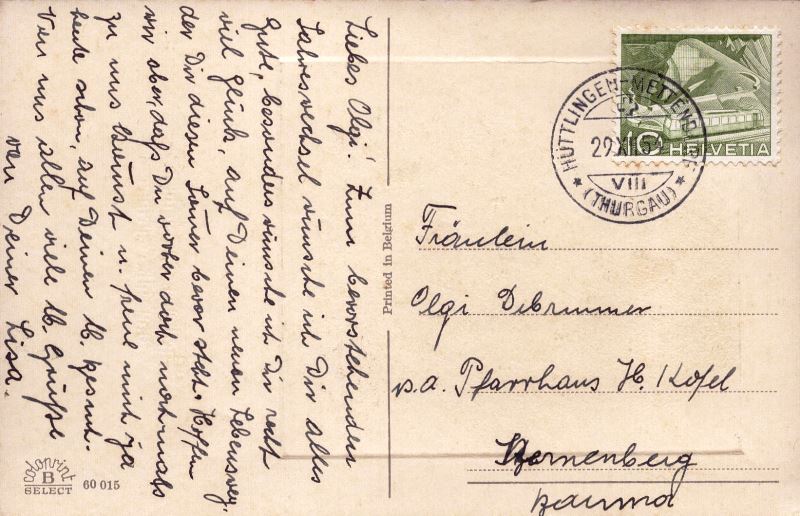 Liebes Olgi! Zum bevorstehenden
Jahreswechsel wünsche ich Dir alles
Gute, besonders wünsche ich Dir recht
viel Glück, auf Deinen neuen Lebensweg,
der Dir diesen bevor steht. Hoffen
wir aber, daß Du vorher doch nochmals
zu uns kommst u. freue mich ja
heute schon, auf Deinen lb. Besuch.
Von uns allen viele lb. Grüße
von Deiner Lisa.
Printed in Belgium
colorprint
B
SELECT
60 015
10
HELVETIA
HÜTTLINGEN-METTENDORF
29.XII.52
VIII
(THURGAU)
Fräulein
Olgi Debrunner
p.a. Pfarrhaus H. Kofel
Sternenberg
Bauma